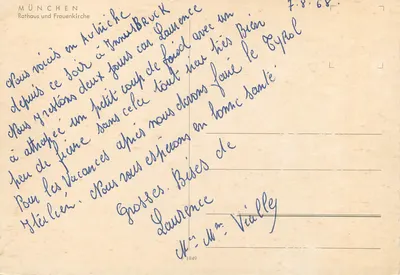 MÜNCHEN
Rathaus und Frauenkirche
7.8.68.
Nous voici en Autriche
depuis ce soir à Innsbruck
Nous y restons deux jours car Laurence
à attrapé un petit coup de froid avec un
peu de fièvre sans cela tout irai très Bien
Pour les vacances après nous devons faire le Tyrol
Italien. Nous vous espérons en bonne santé.
Grosses. Bises de
Laurence
Mr Mme Vialley